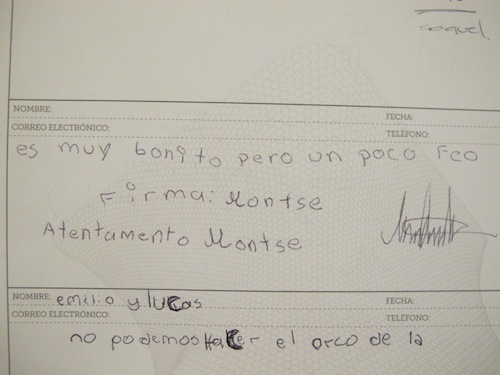 saquel.
NOMBRE: FECHA:
CORREO ELECTRÓNICO: TELÉFONO:
es muy bonito pero un poco Feo
Firma: Montse
Atentamento Montse
NOMBRE: emilio y lucas FECHA:
CORREO ELECTRÓNICO: TELÉFONO:
no podemos Hacer el orco de la